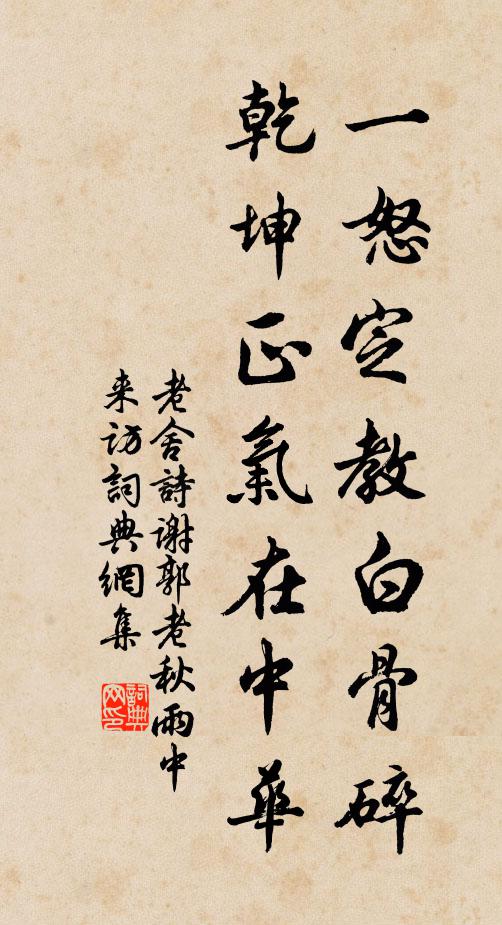 一怒定教白骨碎
乾坤正氣在中華
老舍詩謝郭老秋雨中
来訪詞典網集
詞典网印